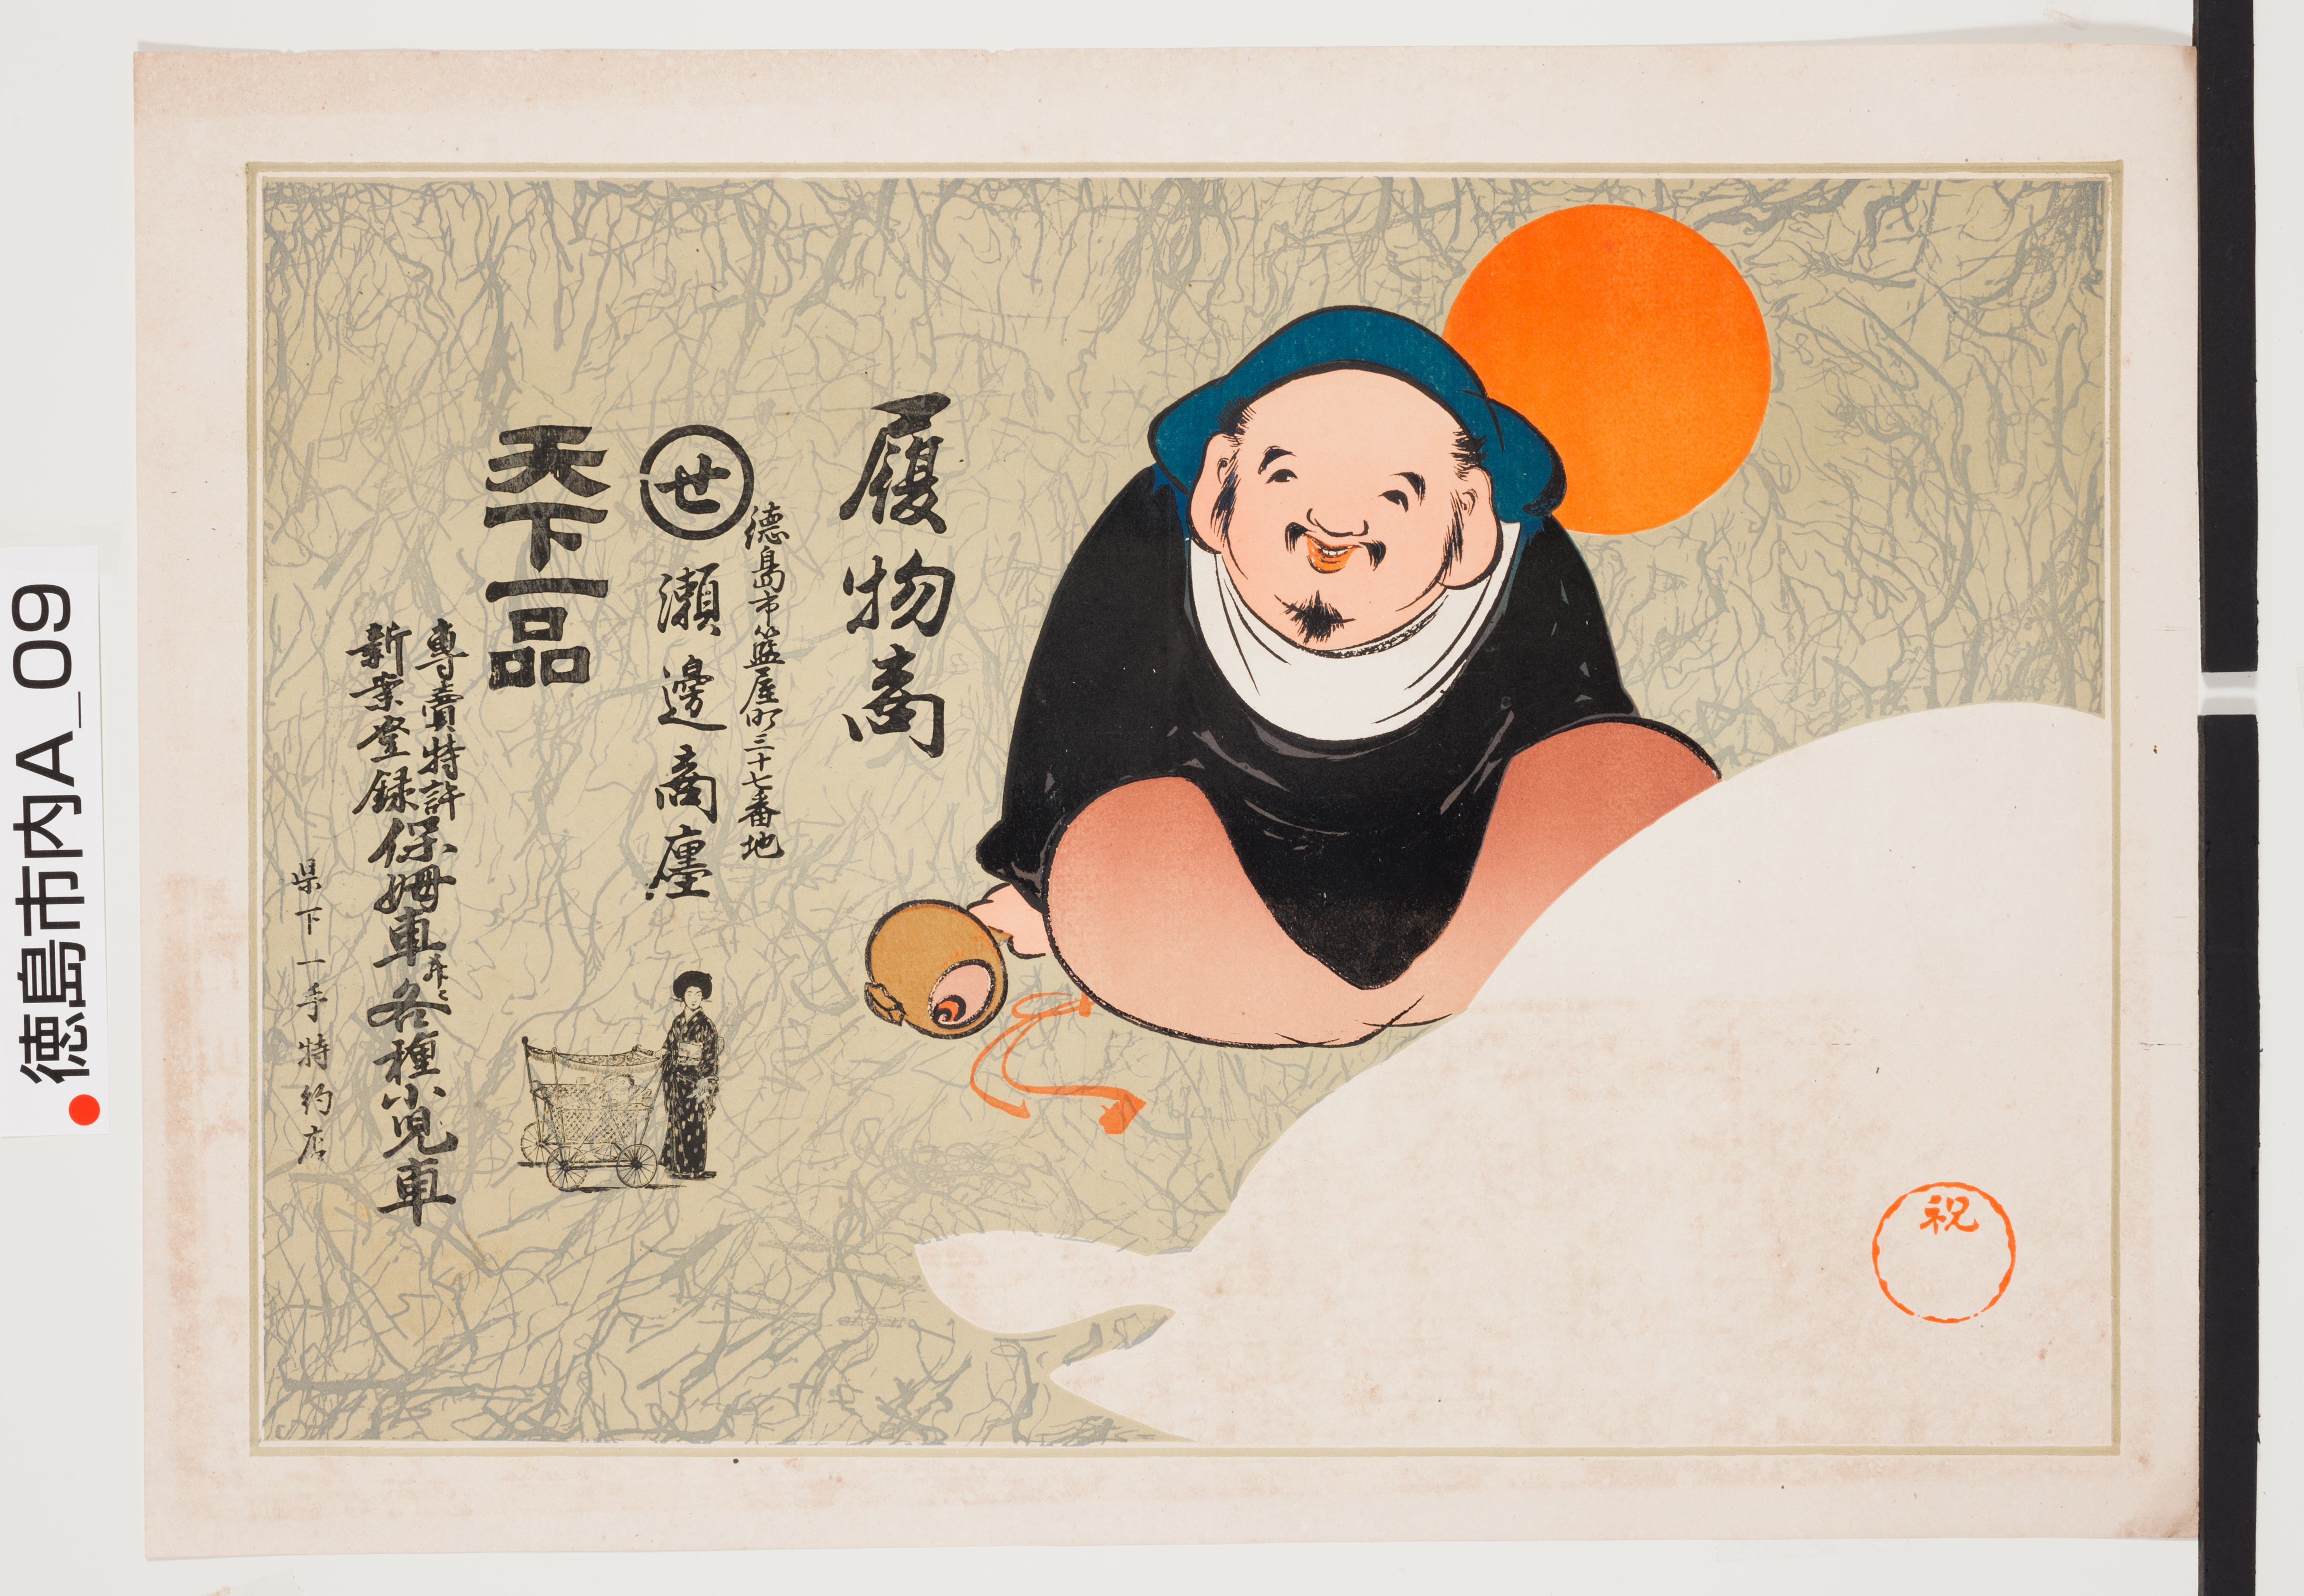 履物商
徳島市籃屋町三十七番地
せ 瀬邊商廛
天下一品
專賣特許
新案登録
保姆車並ニ各種小児車
県下一手特約店
祝
徳島市内A_09